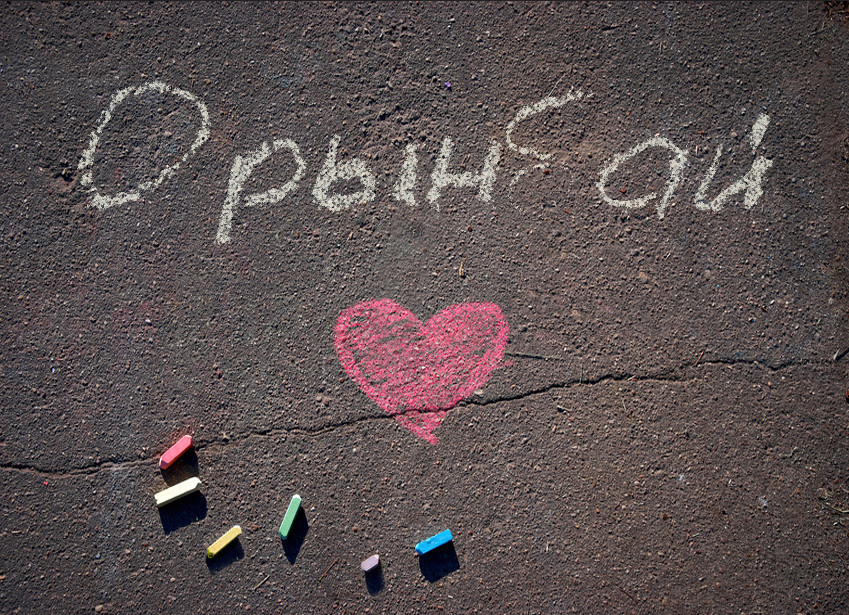 Орынбай